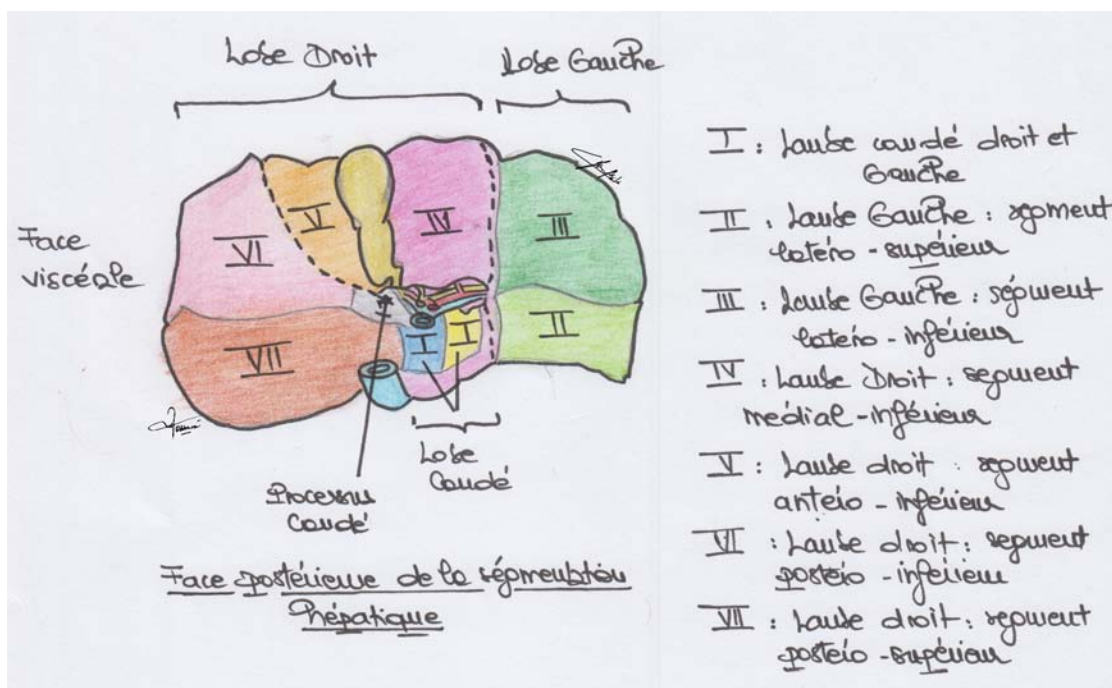 Lobe Droit
Lobe Gauche
Face
viscérale
VI
V
IV
III
VII
I
I
II
Lobe
Caudé
Processus
Caudé
Face postérieure de la ségmentation
hépatique
I : Laube caudé droit et
Gauche
II : Laube Gauche : segment
latéro - supérieur
III : Laube Gauche : ségment
latéro - inférieur
IV : Laube Droit : segment
médial - inférieur
V : Laube droit : segment
antéio - inférieur
VI : Laube droit : segment
postéio - inférieur
VII : Laube droit : segment
postéio - supérieur